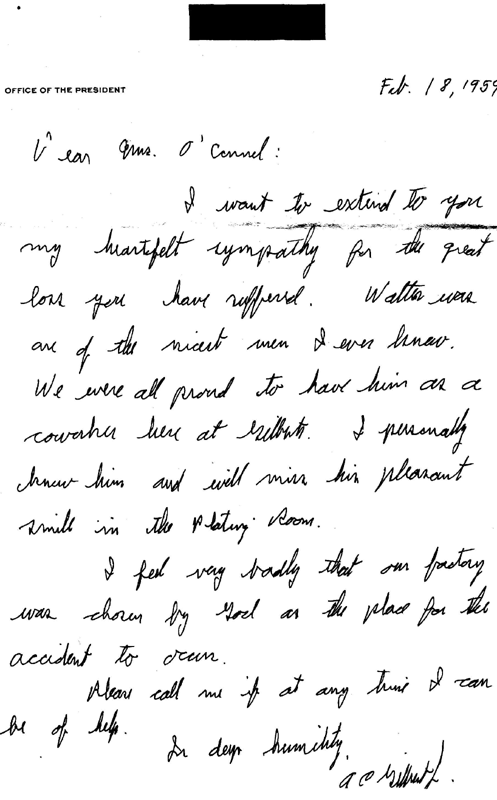 OFFICE OF THE PRESIDENT
Feb. 18, 1959
Dear Mrs. O'Connel:
I want to extend to you
my heartfelt sympathy for the great
loss you have suffered. Walter was
one of the nicest men I ever knew.
We were all proud to have him as a
coworker here at Gilberts. I personally
knew him and will miss his pleasant
smile in the Plating Room.
I feel very badly that our factory
was chosen by God as the place for the
accident to occur.
Please call me if at any time I can
be of help.
In deep humility,
A C Gilbert Jr.